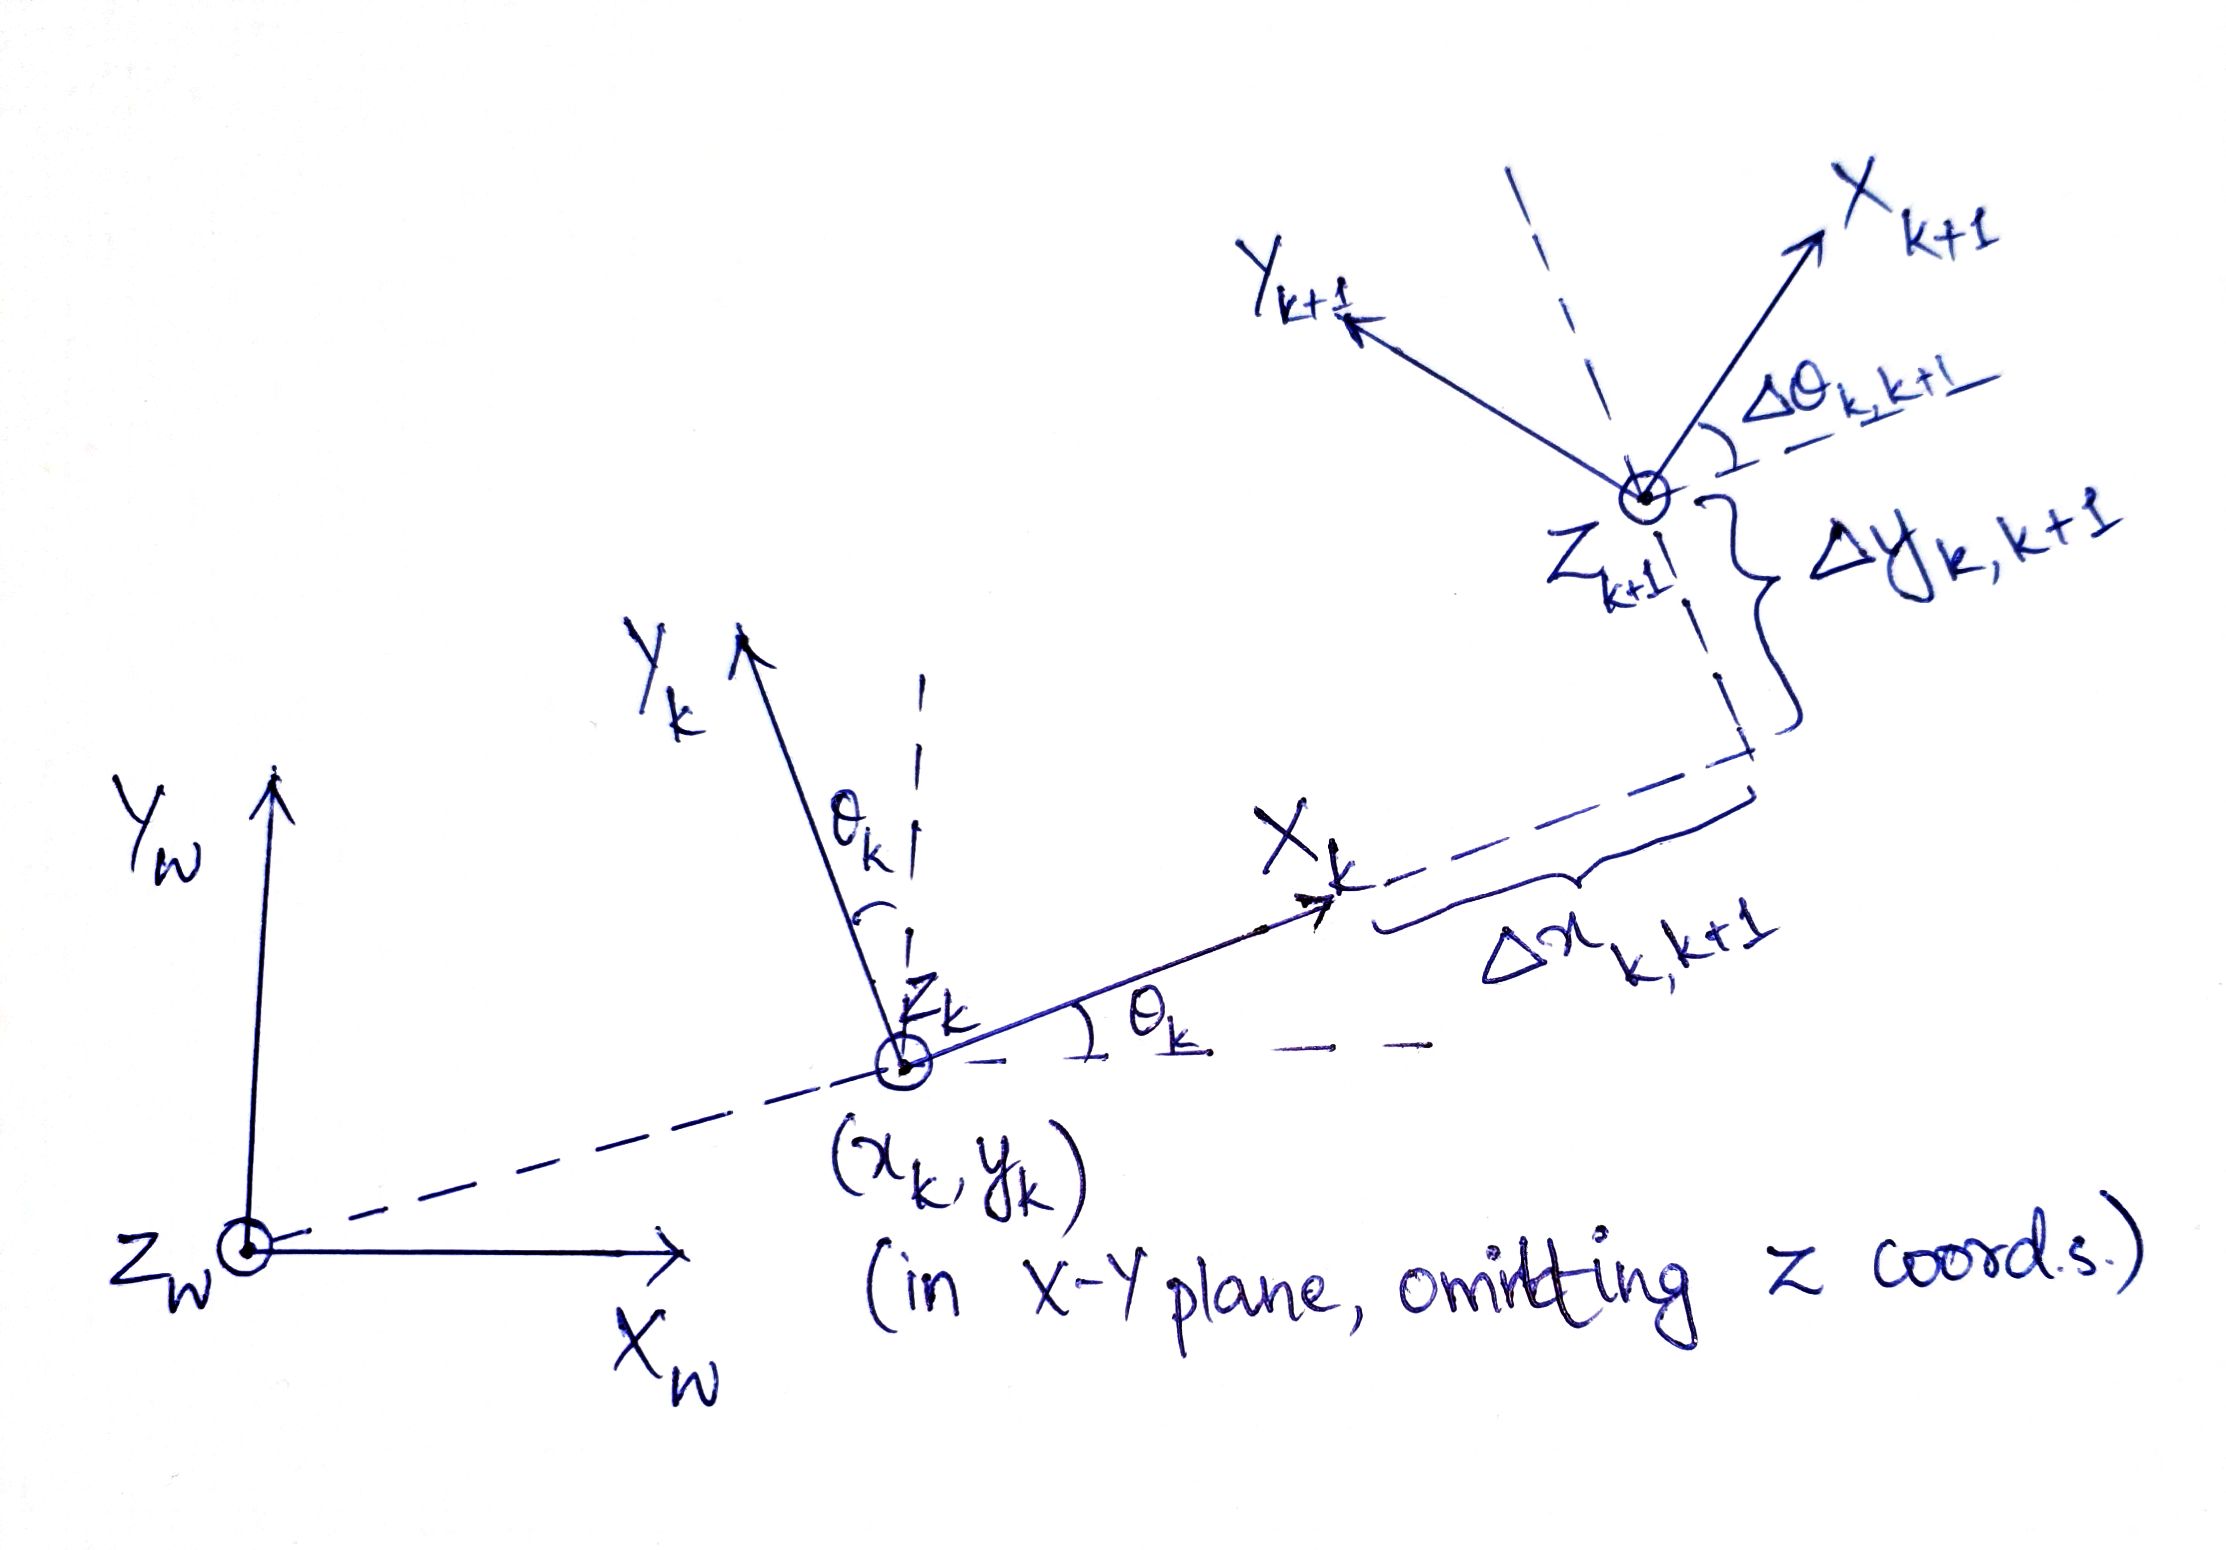 X_{k+1}
Y_{k+1}
Δθ_{k,k+1}
Z_{k+1}
Δy_{k,k+1}
Y_k
Y_w
θ_k
X_k
Δx_{k,k+1}
Z_k
θ_k
(x_k, y_k)
Z_w
(in X-Y plane, omitting z coords.)
X_w